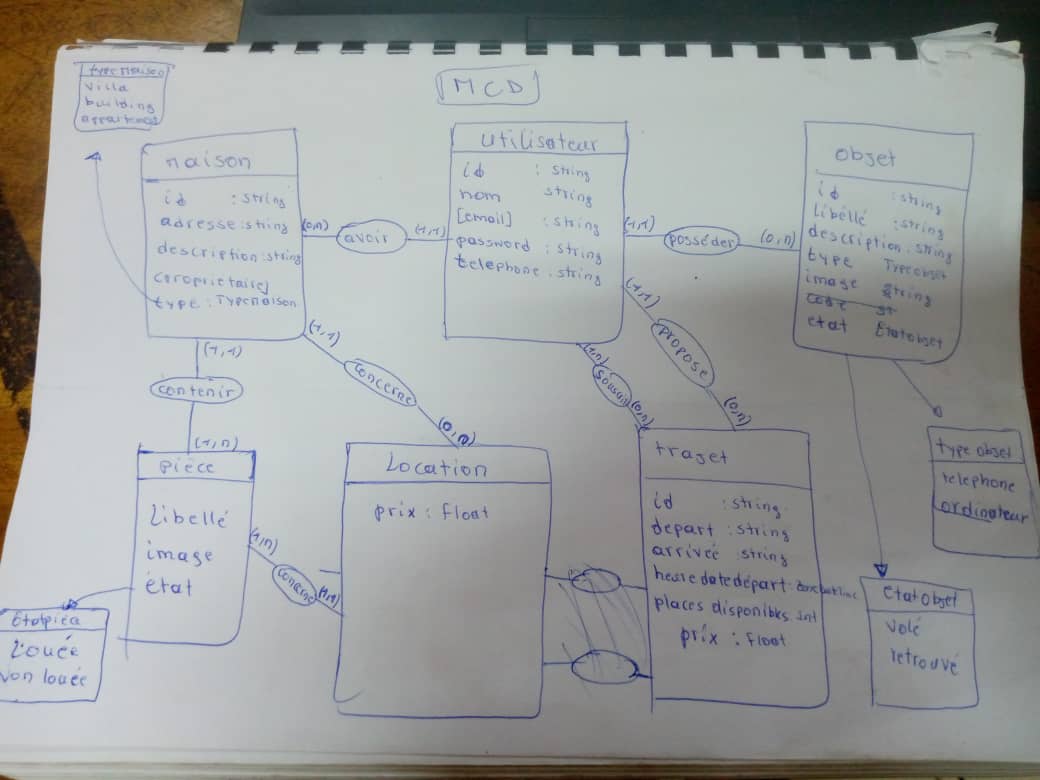 MCD
typeMaison
villa
building
appartement
maison
id : string
adresse : string
description : string
coproprietaire
type : TypeMaison
(0,n)
avoir
(1,1)
utilisateur
id : string
nom string
[email] : string
password : string
telephone : string
(1,1)
posséder
(0,n)
objet
id : string
libéllé : string
description : string
type Typeobjet
image string
code st
etat Etatobjet
(1,1)
contenir
(1,n)
(1,1)
concerne
(0,n)
(1,1)
propose
(0,n)
(0,n)
pièce
Libellé
image
état
Location
prix : float
trajet
id : string
depart : string
arrivée string
heure date départ :
places disponibles int
prix : float
type objet
telephone
ordinateur
(1,n)
concerne
(1,1)
Etatpièce
Louée
Non louée
Etatobjet
volé
retrouvé